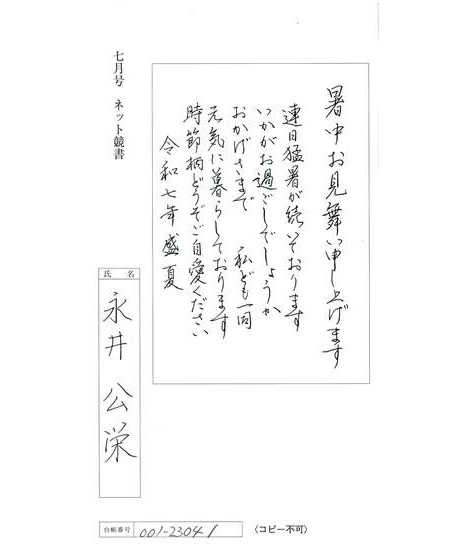 暑中お見舞い申し上げます
連日猛暑が続いております
いかがお過ごしでしょうか
おかげさまで 私ども一同
元気に暮らしております
時節柄どうぞご自愛ください
令和七年 盛夏
七月号 ネット競書
氏名
永井公栄
台帳番号 001-23041
〈コピー不可〉